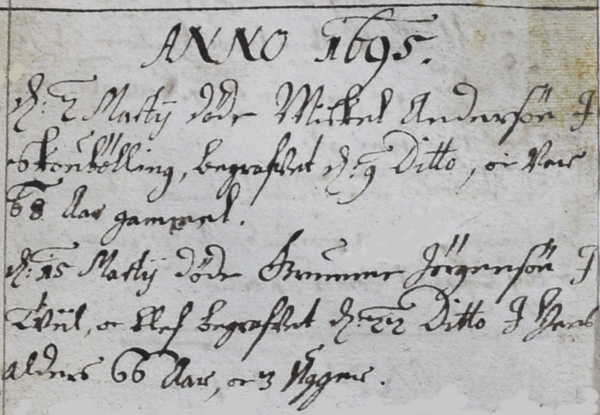 ANNO 1695.
d: 2 Martij døde Mickel Andersøn J
Skoubølling, begrafvet d: 9 Ditto, oc Vaar
68 Aar gammel.
d: 15 Martij døde Grumme Jørgensøn J
Tviil, oc blef begrafvet d: 22 Ditto J hans
alders 66 Aar, oc 3 Ugger.